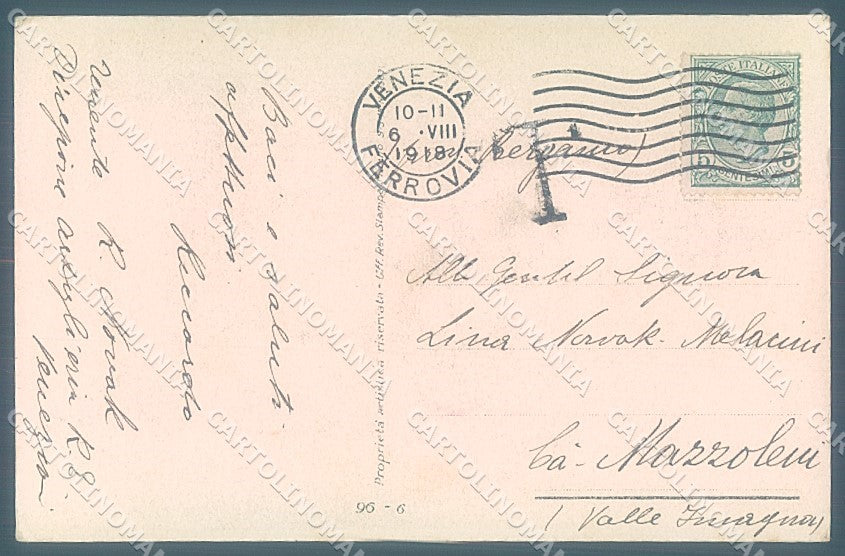 VENEZIA
10-11
6 · VIII
1918
FERROVIA
(Bergamo)
T
POSTE ITALIANE
5 5
CENTESIMI
Alla Gentil Signora
Lina Novak-Melacini
Cà-Mazzoleni
(Valle Imagna)
Baci e saluti
aff.tuosi
Riccardo
R. Novak
Direzione artiglieria R.E.
Venezia
Proprietà artistica riservata - Uff. Rev. Stampa
96 - 6
CARTOLINOMANIA